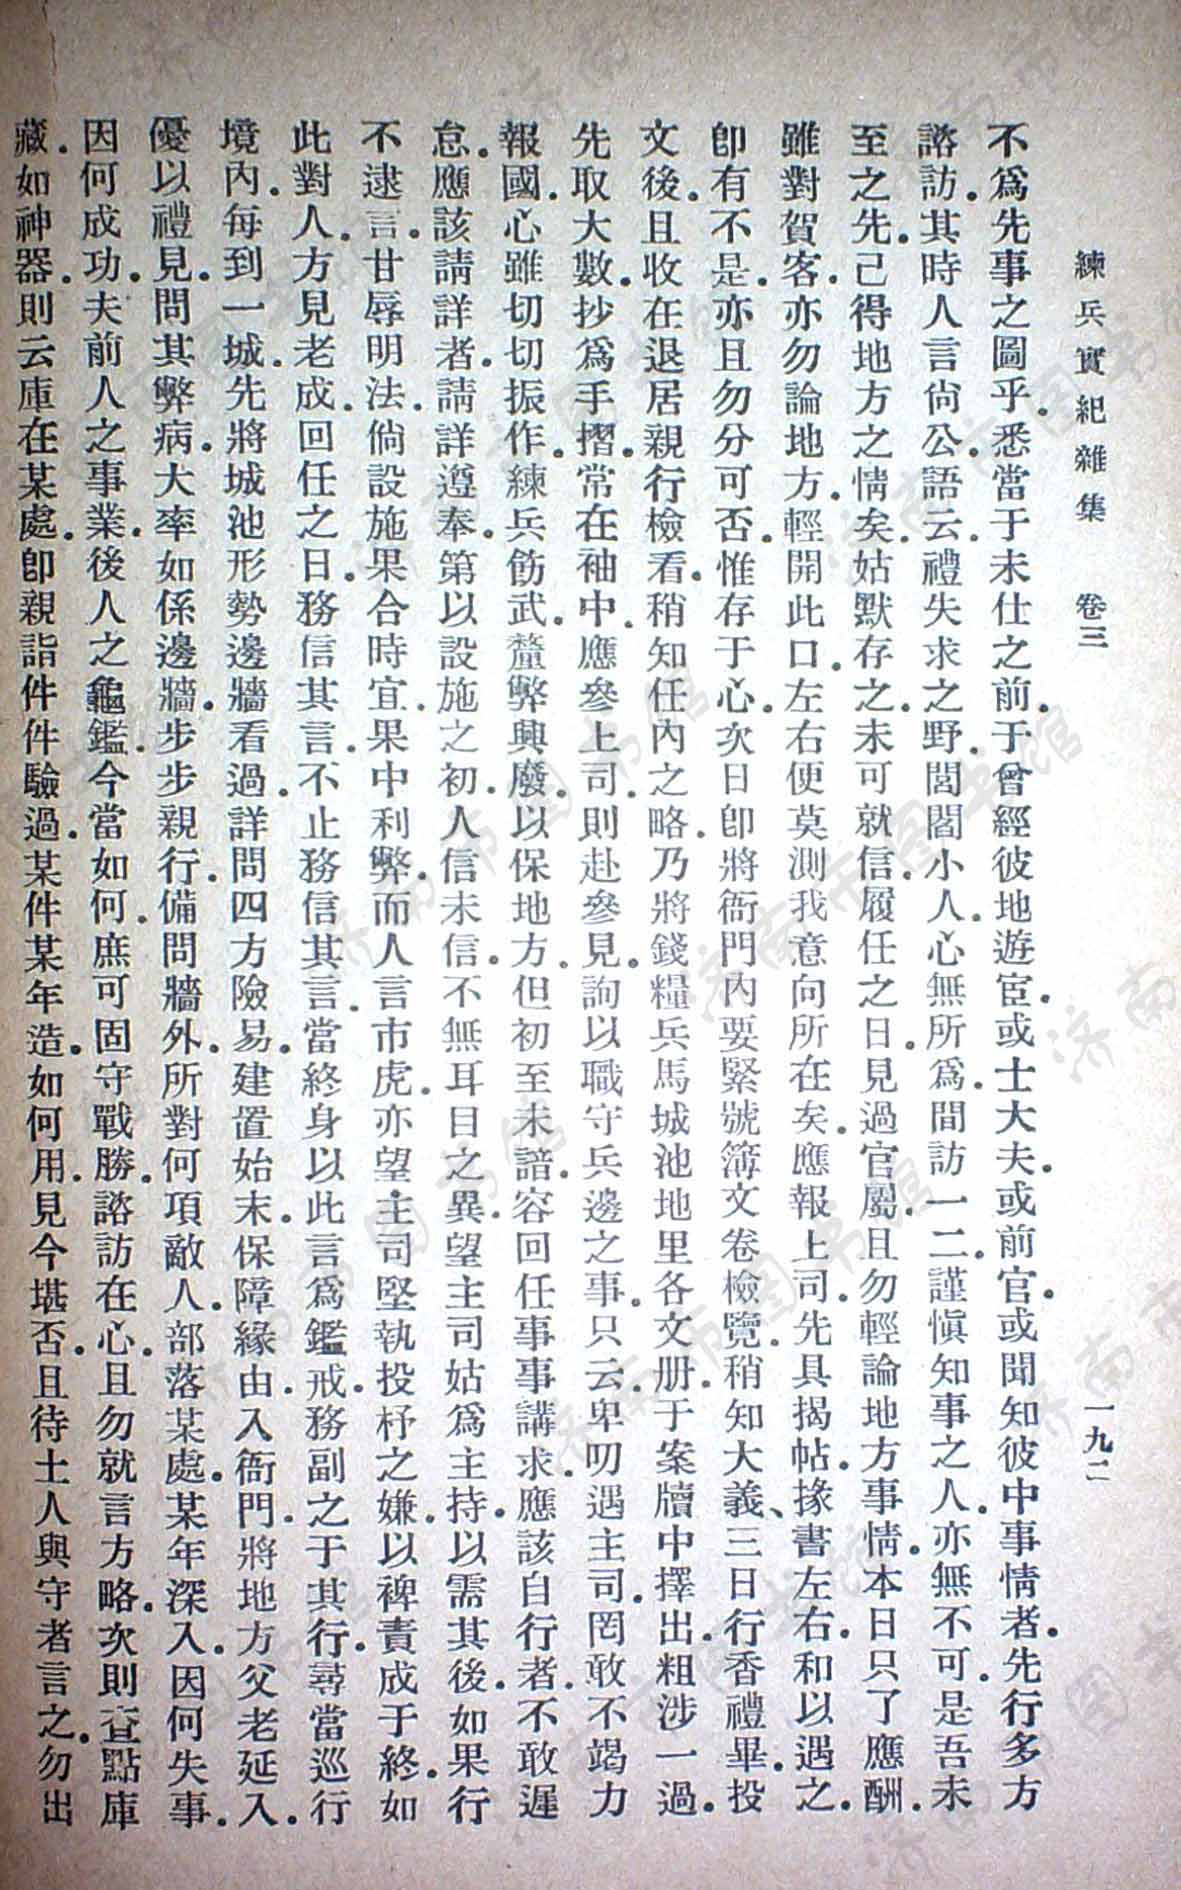 練兵實紀雜集　卷三　一九二
不爲先事之圖乎。悉當于未仕之前。于曾經彼地遊宦。或士大夫。或前官。或聞知彼中事情者。先行多方
諮訪。其時人言尙公。語云。禮失求之野。閭閻小人。心無所爲。間訪一二謹愼知事之人。亦無不可。是吾未
至之先。已得地方之情矣。姑默存之。未可就信。履任之日。見過官屬。且勿輕論地方事情。本日只了應酬。
雖對賀客。亦勿論地方。輕開此口。左右便莫測我意向所在矣。應報上司。先具揭帖。掾書左右。和以遇之。
卽有不是。亦且勿分可否。惟存于心。次日卽將衙門內要緊號簿文卷檢覽。稍知大義、三日行香禮畢。投
文後。且收在退居。親行檢看。稍知任內之略。乃將錢糧兵馬城池地里各文册。于案牘中擇出。粗涉一過。
先取大數。抄爲手摺。常在袖中。應參上司。則赴參見。詢以職守兵邊之事。只云。卑叨遇主司。罔敢不竭力
報國。心雖切切振作。練兵飭武。釐弊興廢。以保地方。但初至未諳。容回任事事講求。應該自行者。不敢遲
怠。應該請詳者。請詳遵奉。第以設施之初。人信未信。不無耳目之異。望主司姑爲主持。以需其後。如果行
不逮言。甘辱明法。倘設施果合時宜。果中利弊。而人言市虎。亦望主司堅執投杼之嫌。以裨責成于終。如
此對人。方見老成。回任之日。務信其言。不止務信其言。當終身以此言爲鑑戒。務副之于其行。尋當巡行
境內。每到一城。先將城池形勢邊牆看過。詳問四方險易。建置始末。保障緣由。入衙門。將地方父老延入。
優以禮見。問其弊病。大率如係邊牆。步步親行。備問牆外。所對何項敵人。部落某處。某年深入。因何失事。
因何成功。夫前人之事業。後人之龜鑑。今當如何。庶可固守戰勝。諮訪在心。且勿就言方略。次則查點庫
藏。如神器。則云庫在某處。卽親詣件件驗過。某件某年造。如何用。見今堪否。且待士人與守者言之。勿出